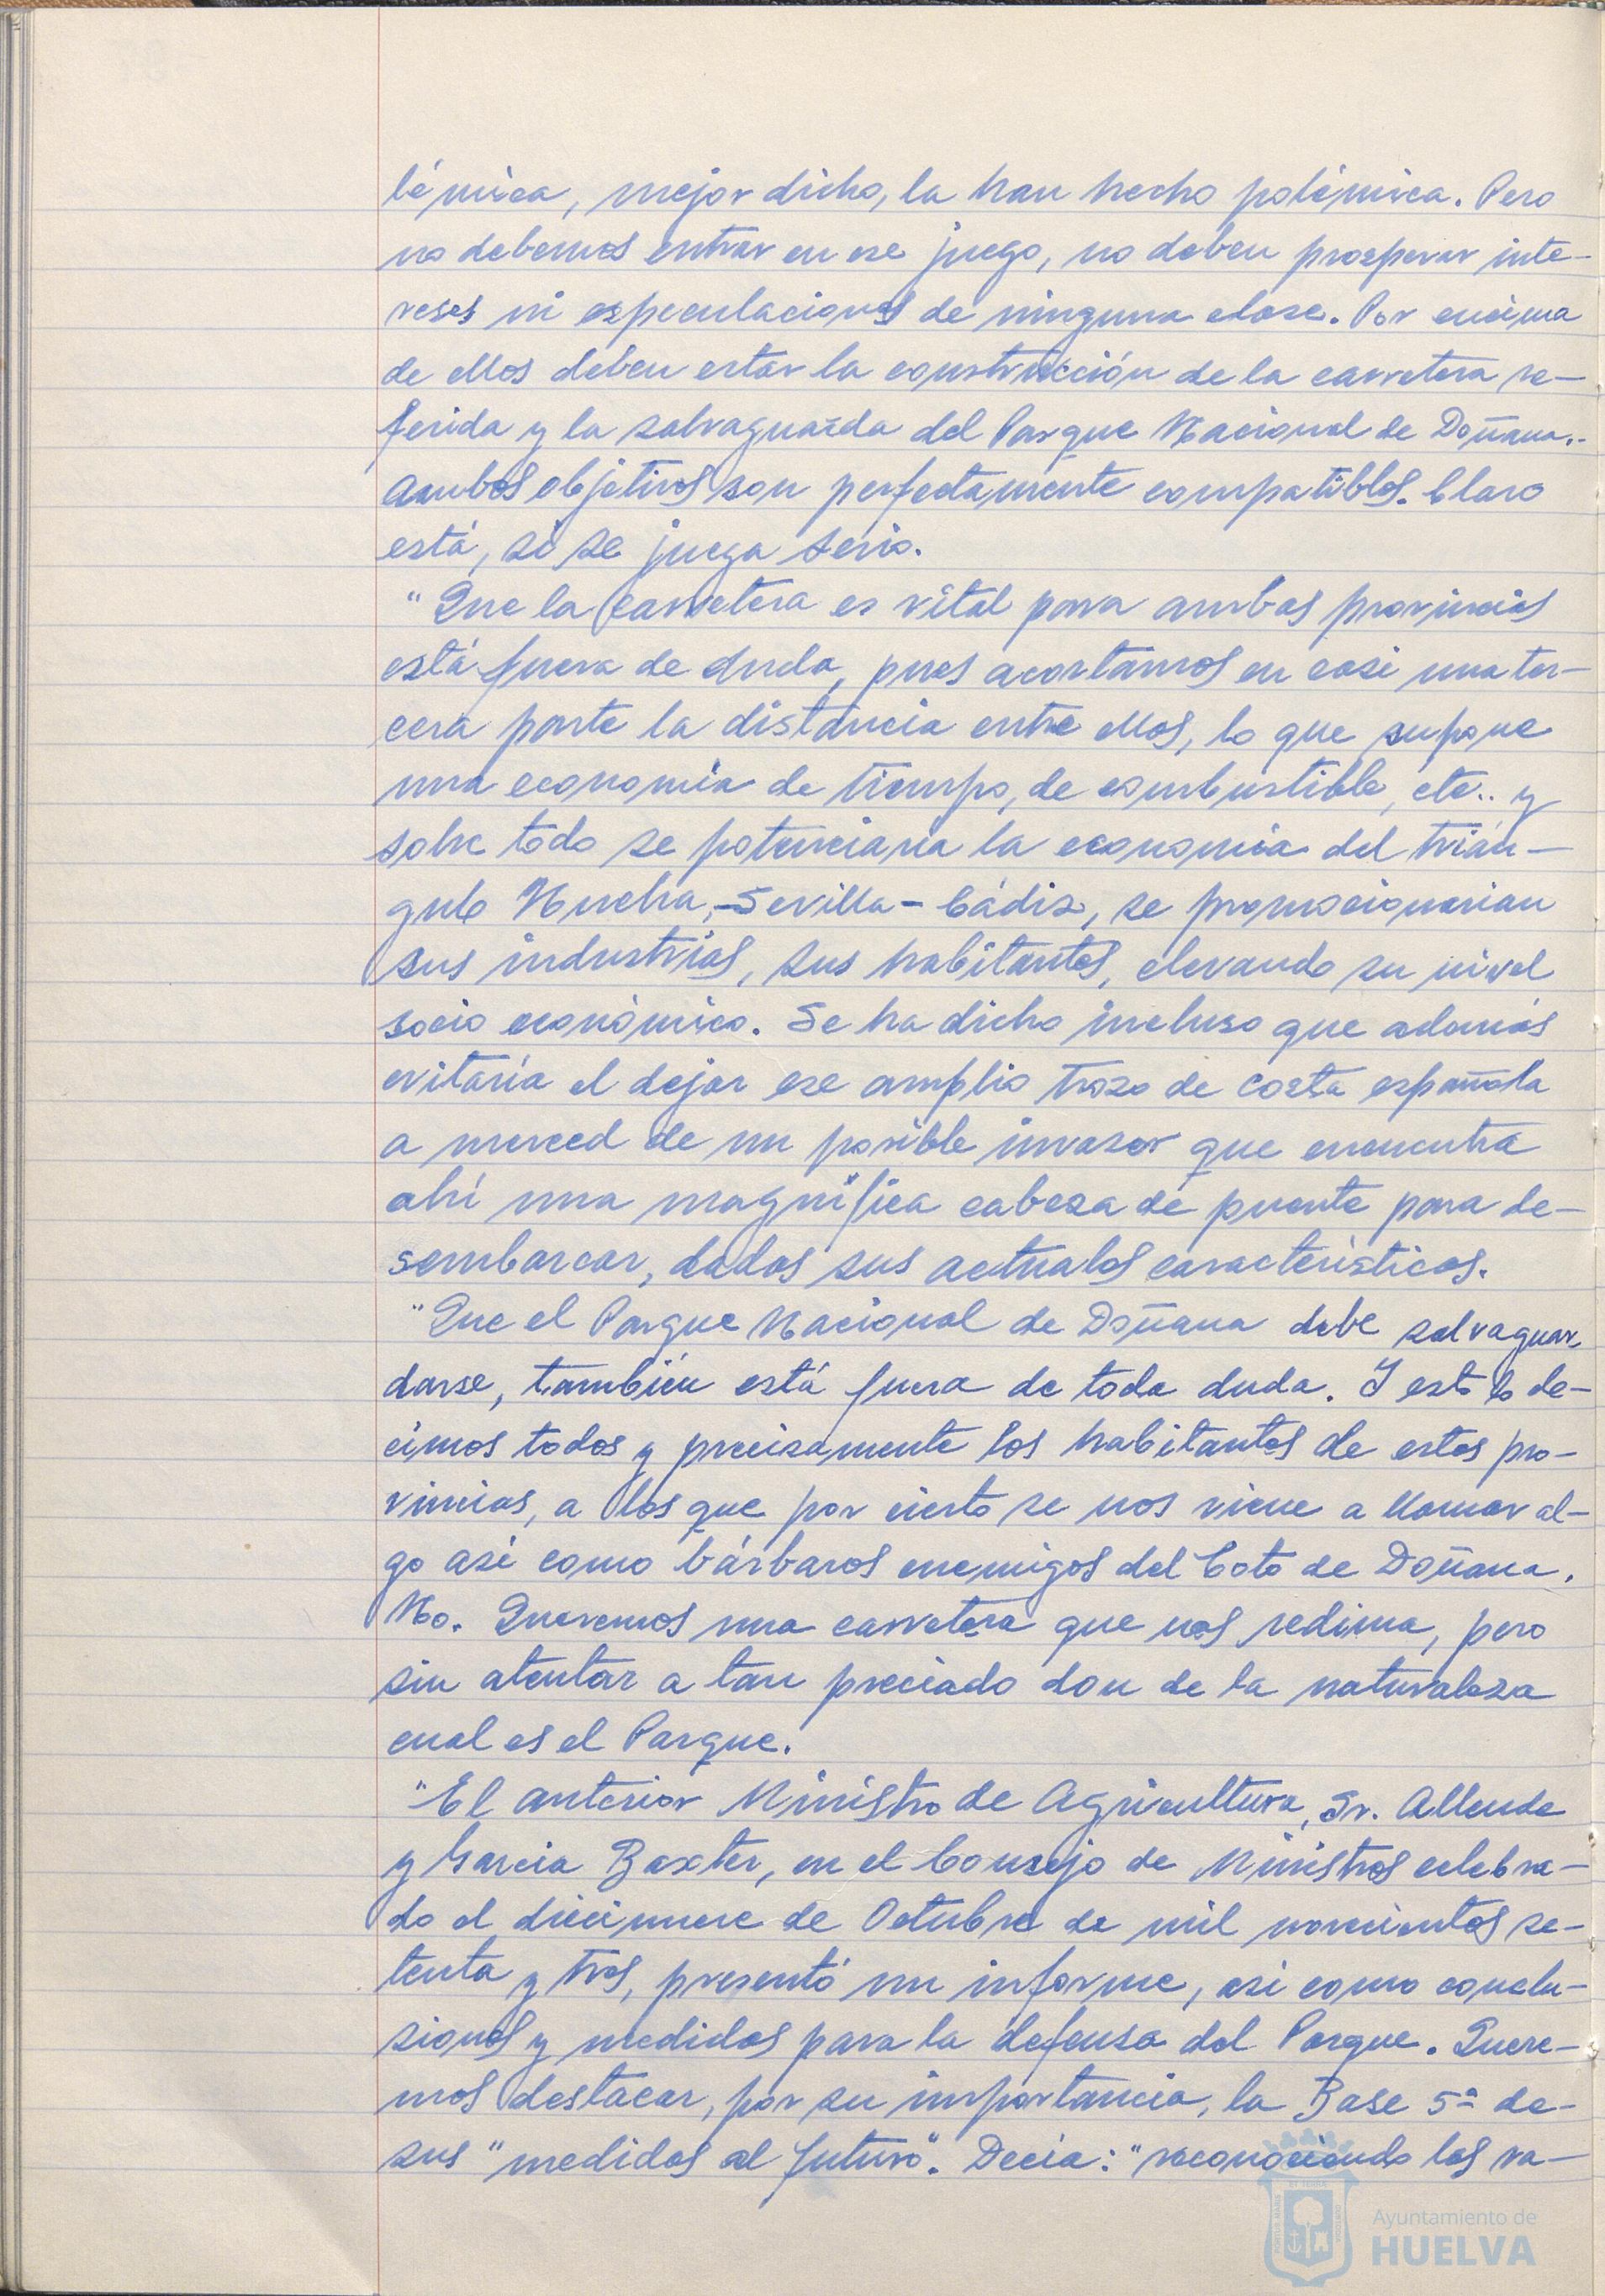 lémica, mejor dicho, la han hecho polémica. Pero
no debemos entrar en ese juego, no deben prosperar inte-
reses ni especulaciones de ninguna clase. Por encima
de ellos deben estar la construcción de la carretera re-
ferida y la salvaguarda del Parque Nacional de Doñana.-
Ambos objetivos son perfectamente compatibles. Claro
está, si se juega serio.
"Que la carretera es vital para ambas provincias
está fuera de duda, pues acortamos en casi una ter-
cera parte la distancia entre ellas, lo que supone
una economía de tiempo, de combustible, etc.. y
sobre todo se potenciaria la economia del trián-
gulo Huelva,-Sevilla-Cádiz, se promocionarian
sus industrias, sus habitantes, elevando su nivel
socio económico. Se ha dicho incluso que además
evitaría el dejar ese amplio trozo de costa española
a merced de un posible invasor que encuentra
ahí una magnífica cabeza de puente para de-
sembarcar, dadas sus actuales caracteristicas.
"Que el Parque Nacional de Doñana debe salvaguar-
darse, también está fuera de toda duda. Y esto lo de-
cimos todos y precisamente los habitantes de estas pro-
vincias, a los que por cierto se nos viene a llamar al-
go así como bárbaros enemigos del Coto de Doñana.
No. Queremos una carretera que nos redima, pero
sin atentar a tan preciado don de la naturaleza
cual es el Parque.
"El anterior Ministro de Agricultura, Sr. Allende
y Garcia Baxter, en el Consejo de Ministros celebra-
do el diecinueve de Octubre de mil novecientos se-
tenta y tres, presentó un informe, asi como conclu-
siones y medidas para la defensa del Parque. Quere-
mos destacar, por su importancia, la Base 5ª de-
sus "medidas al futuro". Decia: "reconociendo los va-
Ayuntamiento de
HUELVA